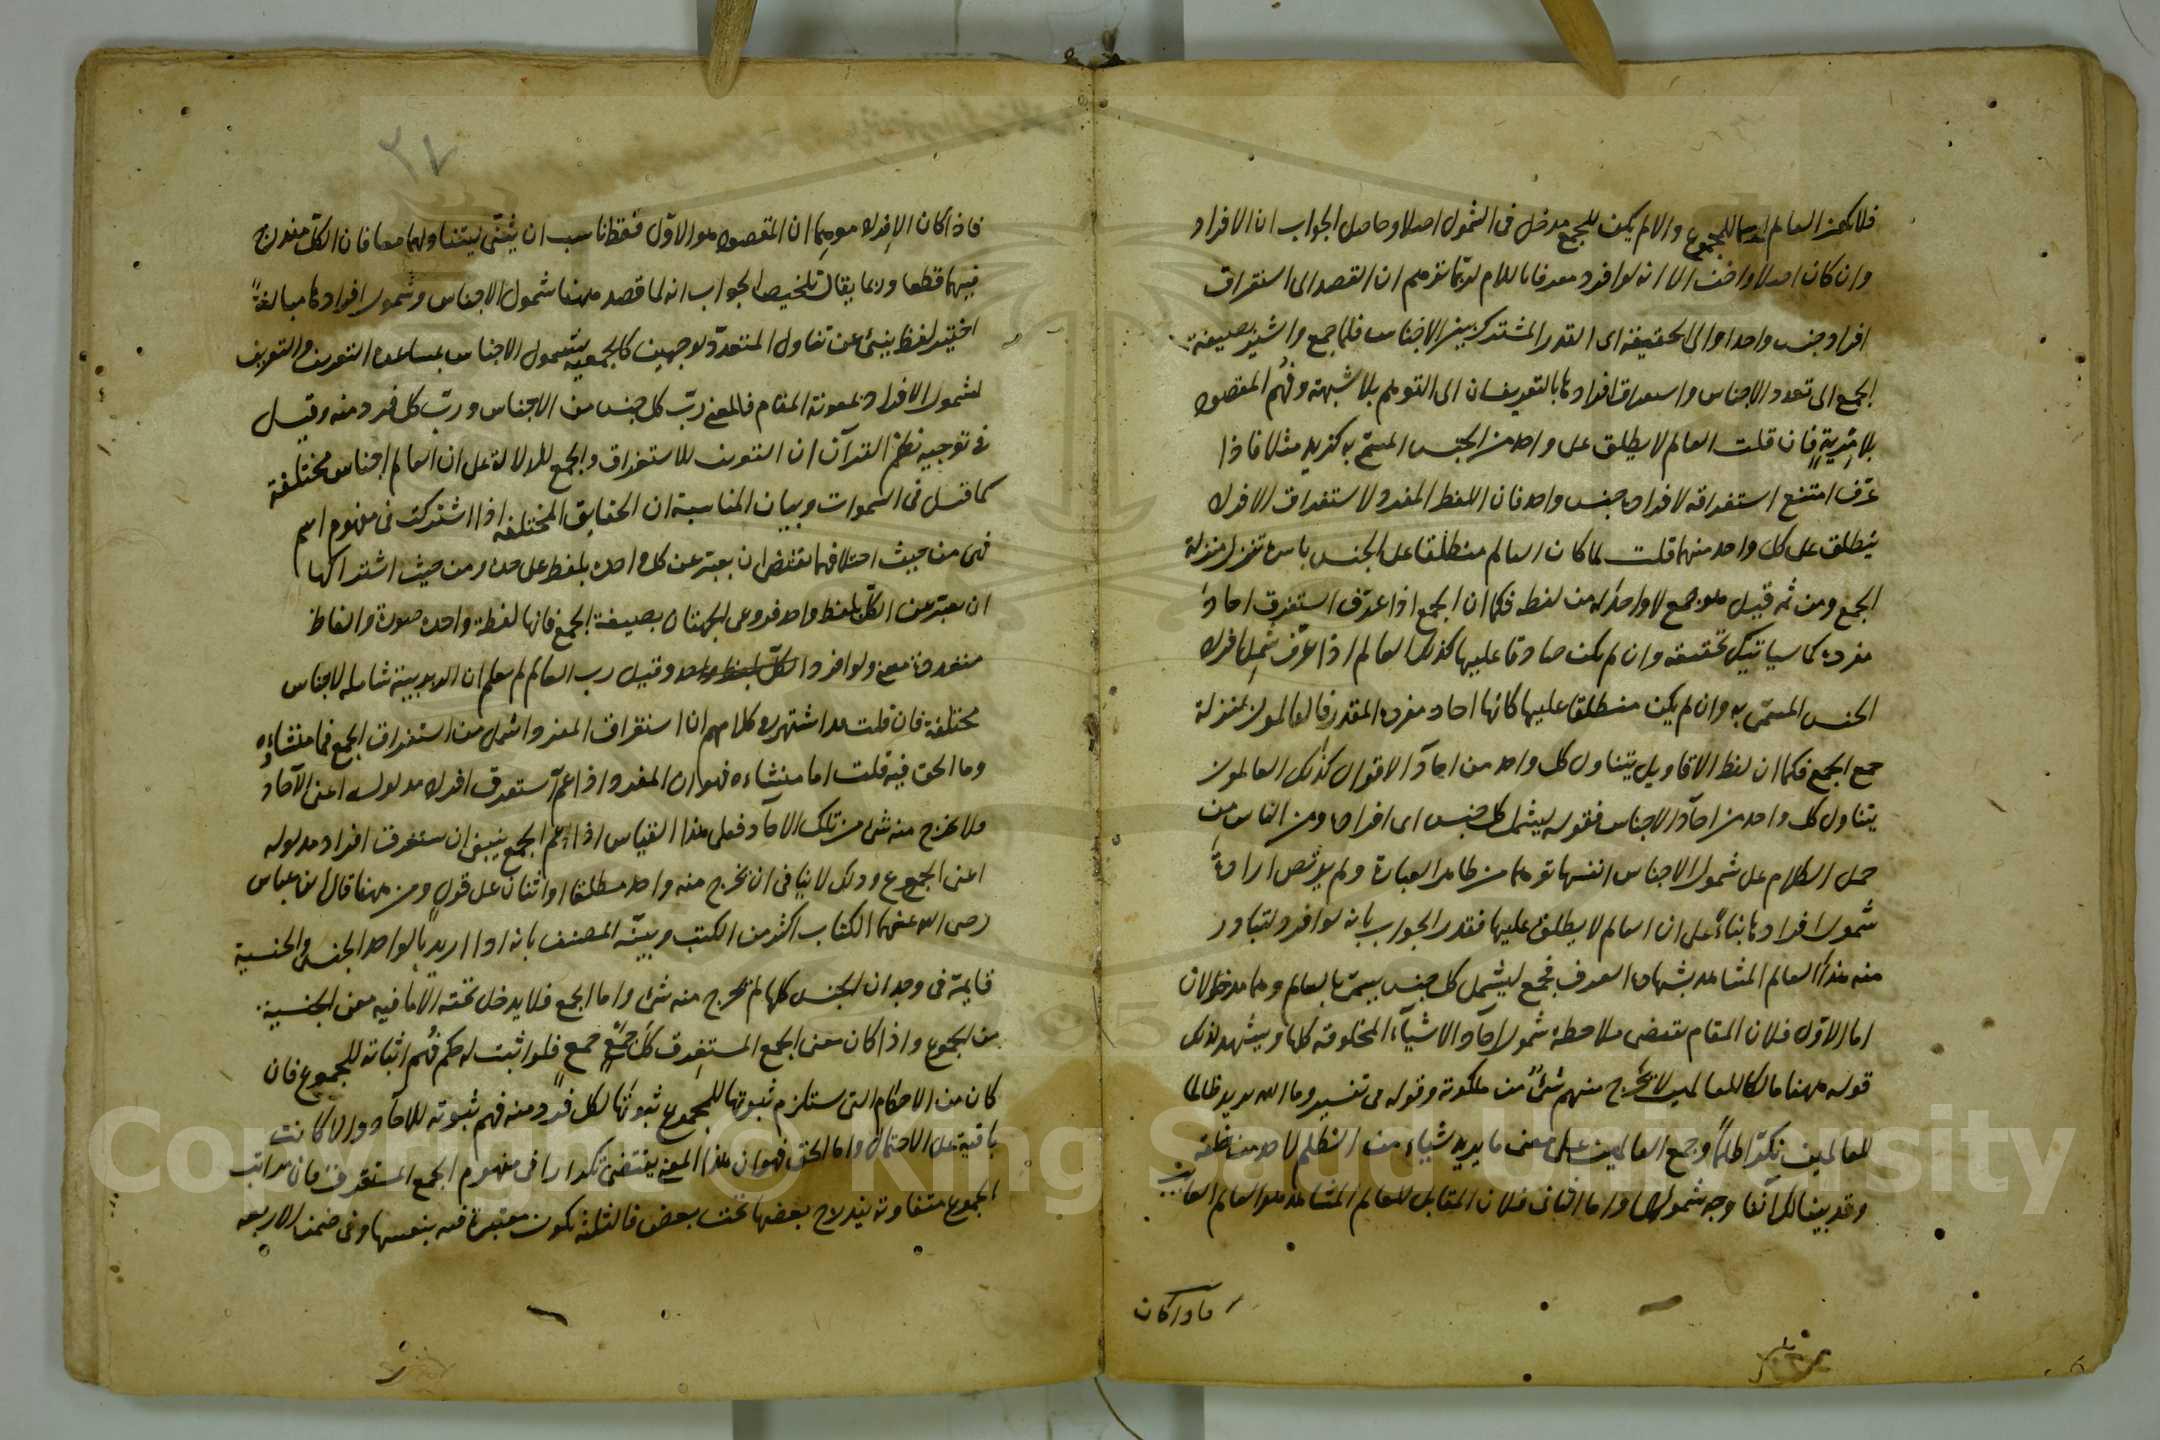 فلا يكون العالم اسما للمجموع والا لم يكن للجمع مدخل فى الشمول اصلا وحاصل الجواب ان الافراد
وان كان اصلا واخف الا انه لو افرد معرفا باللام لربما يتوهم ان القصد الى استغراق
افراد جنس واحد او الى الحقيقة اى القدر المشترك بين الاجناس فلما جمع واشير بصيغة
الجمع الى تعدد الاجناس واستغراق افرادها بالتعريف زال التوهم بلا شبهة وفهم المقصود
بلا مرية فان قلت العالم لا يطلق على واحد من الجنس المسمى به كزيد مثلا فاذا
عرف امتنع استغراقه لافراد جنس واحد فان اللفظ المفرد لا يستغرق الا افرادا
يطلق على كل واحد منها قلت لما كان العالم منطلقا على الجنس باسره تنزل منزلة
الجمع ومن ثم قيل هو جمع لا واحد له من لفظه فكما ان الجمع اذا عرف استغرق احاد
مفرده كما سياتيك تحقيقه وان لم يكن صادقا عليها كذلك العالم اذا عرف شمل افراد
الجنس المسمى به وان لم يكن منطلقا عليها كانها احاد مفرده المقدر فالعالمون بمنزلة
جمع الجمع فكما ان لفظ الاقاويل يتناول كل واحد من احاد الاقوال كذلك العالمون
يتناول كل واحد من احاد الاجناس فقوله ليشمل كل جنس اى افراده ومن الناس من
حمل الكلام على شمول الاجناس انفسها توهما من ظاهر العبارة ولم يرتض ارادة
شمول افرادها بناء على ان العالم لا يطلق عليها فقدر الجواب بانه لو افرد لتبادر
منه هذا العالم المشاهد بشهادة العرف فجمع ليشمل كل جنس يسمى بالعالم وهما مدخولان
اما الاول فلان المقام يقتضى ملاحظة شمول احاد الاشياء المخلوقة كلها ويشهد لذلك
قوله ههنا مالكا للعالمين لا يخرج منهم شئ من ملكوته وقوله فى تفسير وما الله يريد ظلما
للعالمين نكر ظلما وجمع العالمين على معنى ما يريد شياء من الظلم لاحد من خلقه
وقد بينا لك آنفا وجه شمولها واما الثانى فلان المقابل للعالم المشاهد هو العالم الغائب
فاذا كان الافراد موهما ان المقصود هو الاول فقط ناسب ان يثنى ليتناولهما معا فان الكل مندرج
فيهما قطعا وربما يقال تلخيص الجواب انه لما قصد ههنا شمول الاجناس وشمول افرادها مبالغة
اختير لفظ ينبئ عن تناول المتعدد لوجهين كالجمعية لشمول الاجناس بمساعدة التعريف والتعريف
لشمول الافراد بمعونة المقام فالمعنى رب كل جنس من الاجناس ورب كل فرد منه وقيل
فى توجيه نظم القرآن ان التعريف للاستغراق والجمع للدلالة على ان العالم اجناس مختلفة
كما قيل فى السموات وبيان المناسبة ان الحقايق المختلفة اذا اشتركت فى مفهوم اسم
فهى من حيث اختلافها تقتضى ان يعبر عن كل واحدة بلفظ على حدة ومن حيث اشتراكها
ان يعبر عن الكل بلفظ واحد فروعى الجهتان بصيغة الجمع فانها لفظة واحدة صورة والفاظ
متعددة معنى ولو افرد وقيل رب العالم لم يعلم ان الربوبية شاملة لاجناس
مختلفة فان قلت قد اشتهر فى كلامهم ان استغراق المفرد اشمل من استغراق الجمع فما منشاؤه
وما الحق فيه قلت اما منشاءه فهو ان المفرد اذا عم استغرق افراد مدلوله اعنى الآحاد
فلا يخرج منه شئ من تلك الآحاد فعلى هذا القياس اذا عم الجمع ينبغى ان يستغرق افراد مدلوله
اعنى الجموع وذلك لا ينافى ان يخرج منه واحد مطلقا او اثنان على قول ومن ههنا قال ابن عباس
رضى الله عنهما الكتاب اكثر من الكتب وبينه المصنف بانه اذا اريد بالواحد الجنس والجنسية
قايمة فى وجدان الجنس كلها لم يخرج منه شئ واما الجمع فلا يدخل تحته الا ما فيه معنى الجنسية
من الجموع واذا كان معنى الجمع المستغرق كل جمع جمع فلو اثبت له حكم فهم اثباته للجموع فان
كان من الاحكام التى يستلزم ثبوتها للجموع ثبوتها لكل فرد منه فهم ثبوته للآحاد والا كانت
باقية على الاحتمال واما الحق فهو ان هذا المعنى يقتضى تكرارا فى مفهوم الجمع المستغرق فان مراتب
الجموع متفاوتة يندرج بعضها تحت بعض فالثلثة تكون معتبرة فيه بنفسها وفى ضمن الاربعة